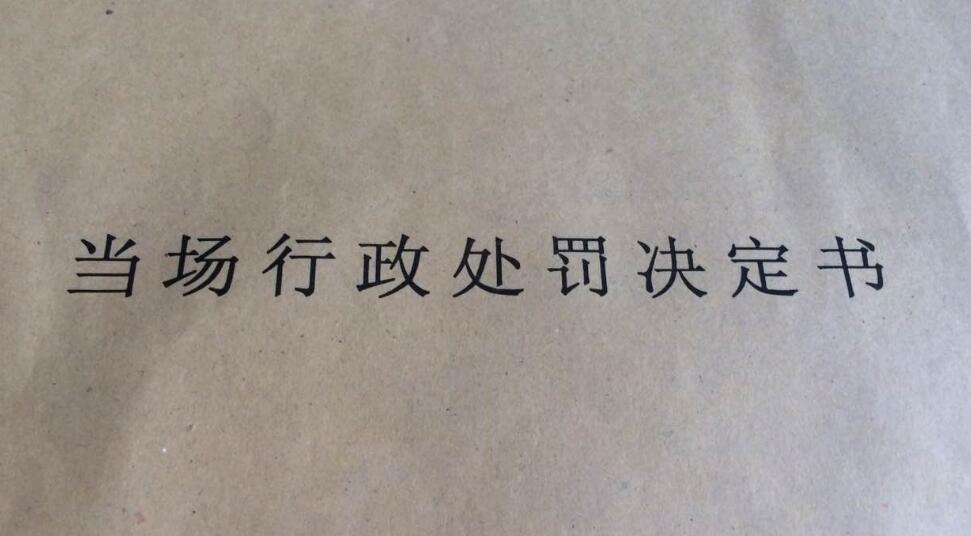 当场行政处罚决定书